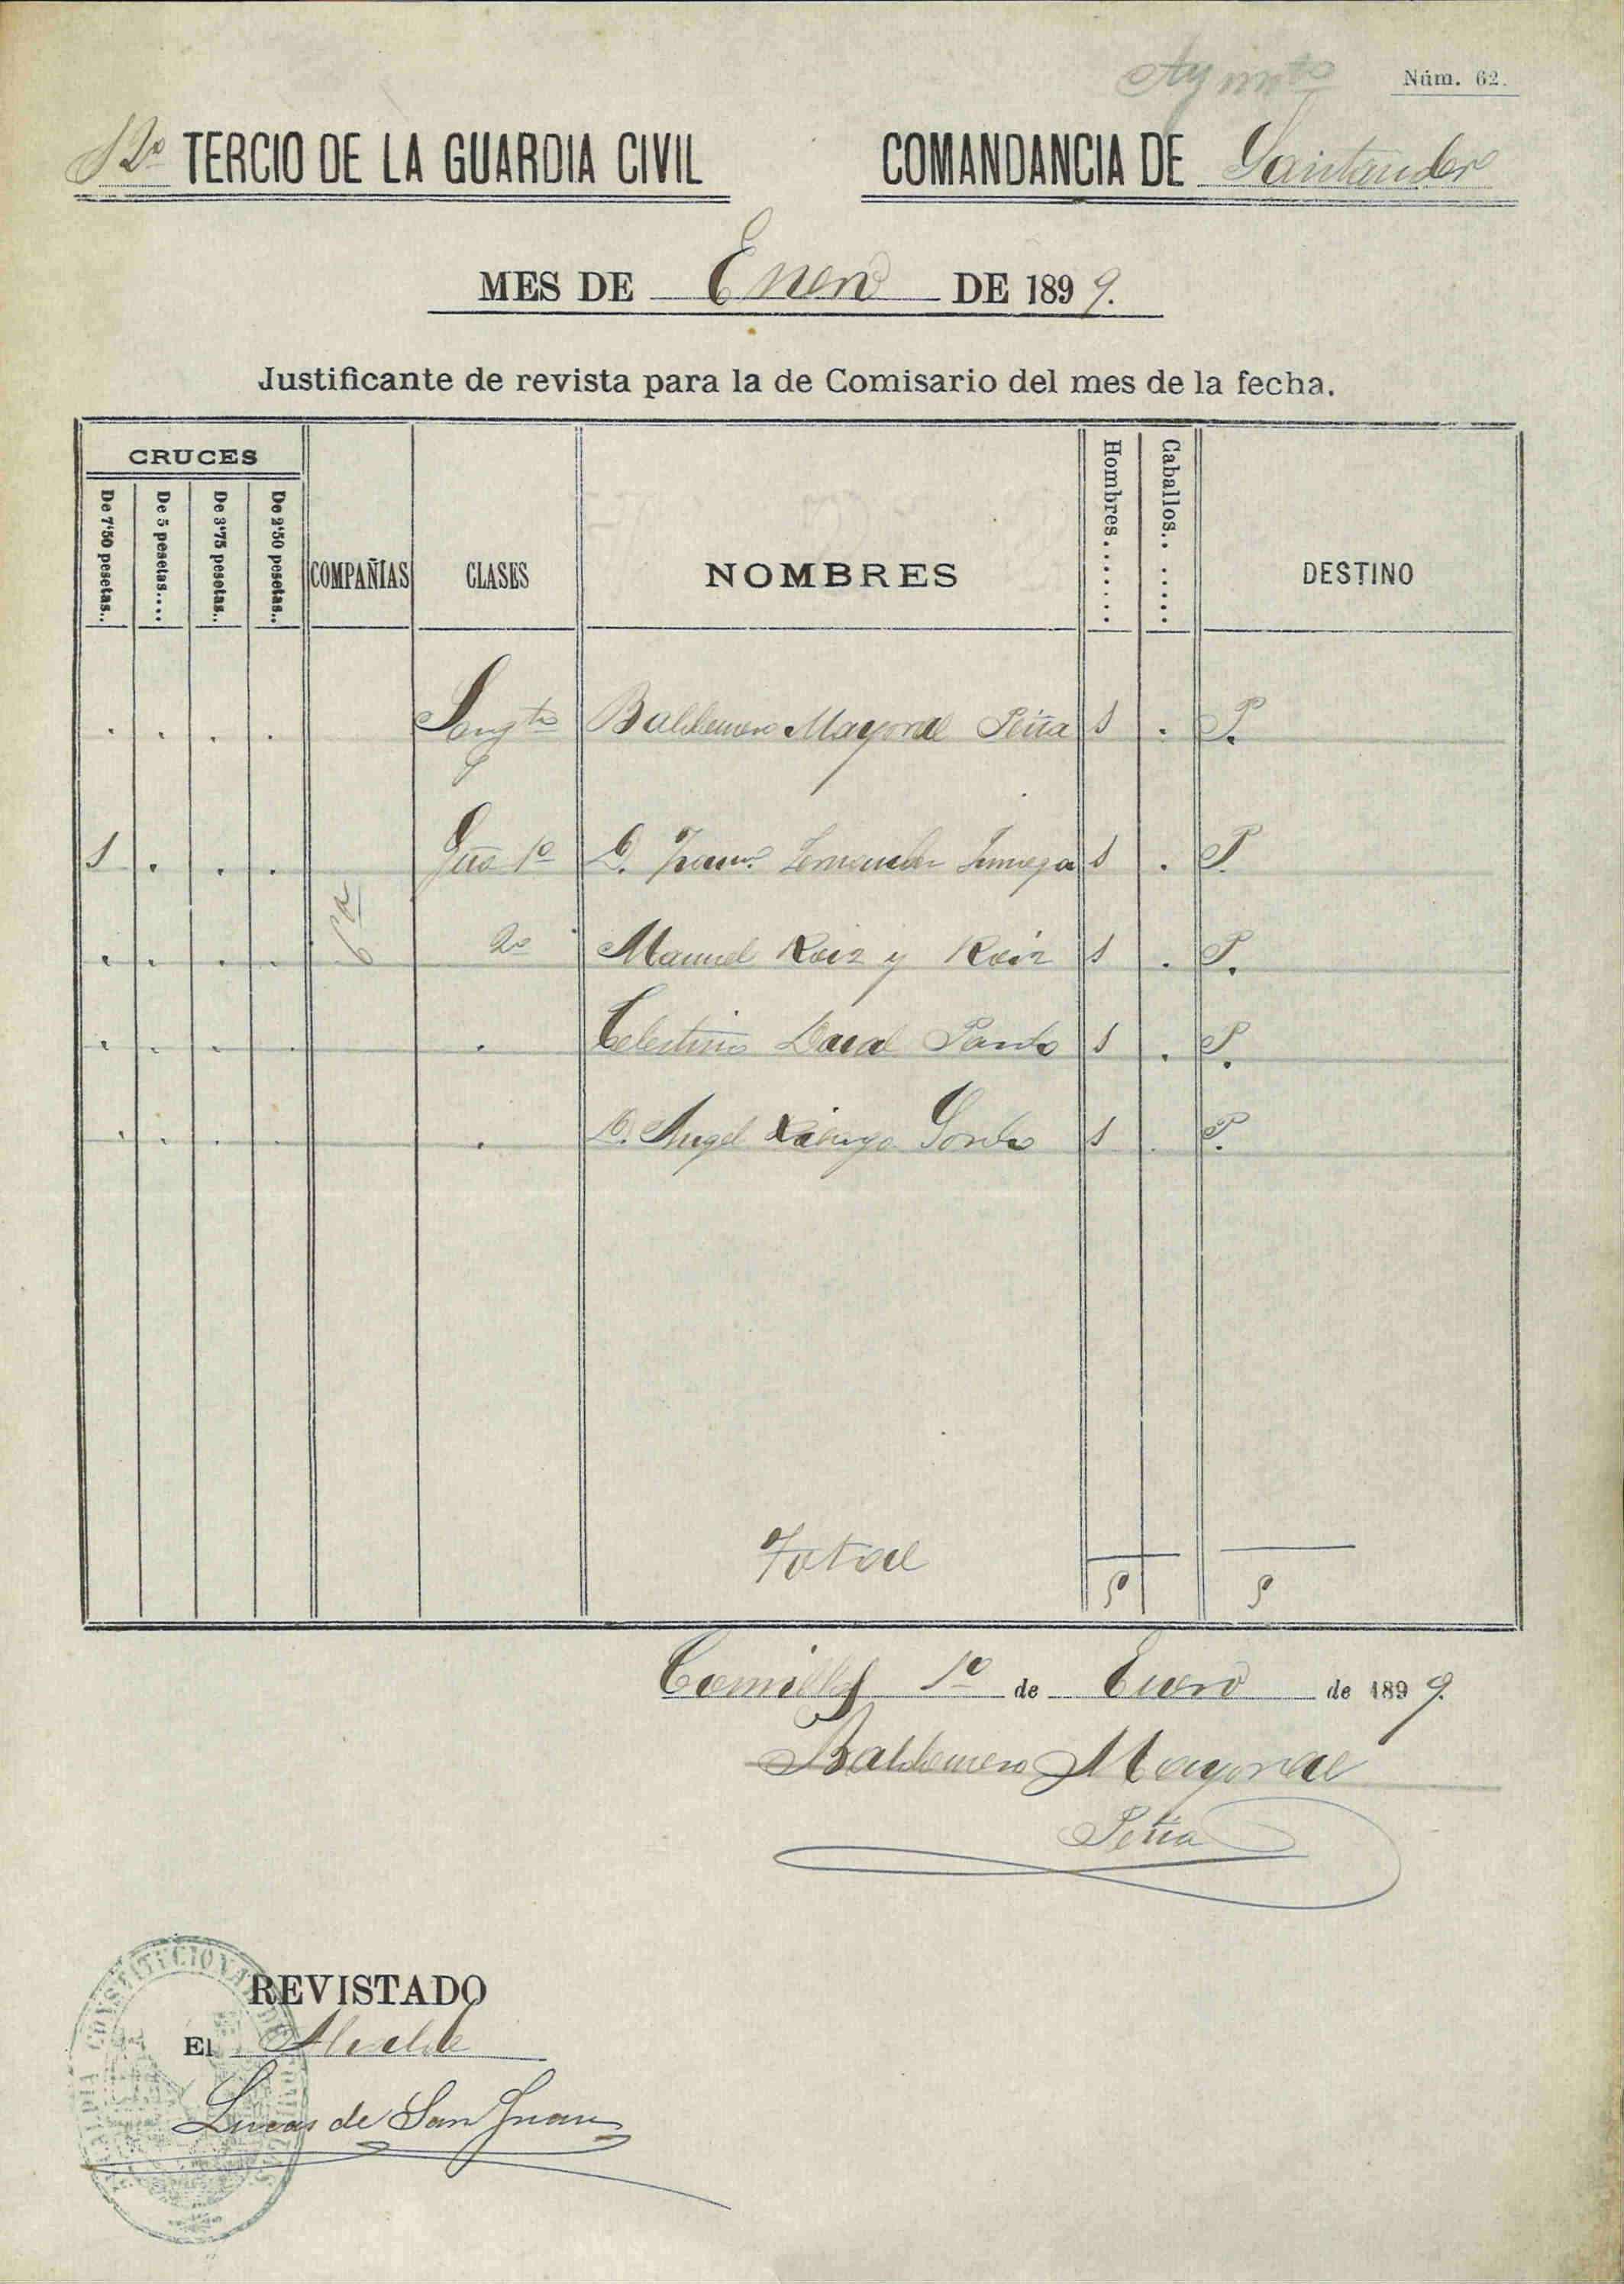 Aymto
Núm. 62.
12º TERCIO DE LA GUARDIA CIVIL
COMANDANCIA DE Santander
MES DE Enero DE 1899.
Justificante de revista para la de Comisario del mes de la fecha.
CRUCES
De 7'50 pesetas..
De 5 pesetas....
De 3'75 pesetas..
De 2'50 pesetas..
COMPAÑIAS
CLASES
NOMBRES
Hombres.......
Caballos.......
DESTINO
. . . . Sargto Baldomero Mayoral Peña 1 . P.
1 . . . Gua 1º D. Franco. 1 . P.
6ª
. . . . 2º Manuel Roiz y Roiz 1 . P.
. . . . . Celestino Pardo 1 . P.
. . . . . D. Angel Gordo 1 . P.
Total 5 5
Comillas 1º de Enero de 1899.
Baldomero Mayoral
Peña
REVISTADO
El Alcalde
Lucas de San Juan
ALCALDIA CONSTITUCIONAL DE COMILLAS